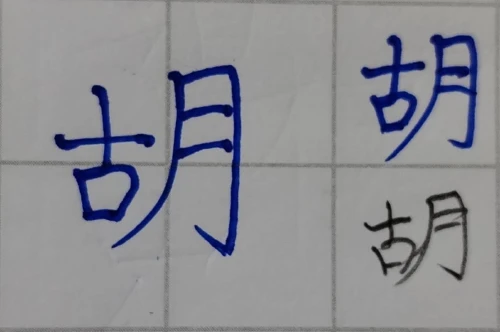 胡 胡
胡